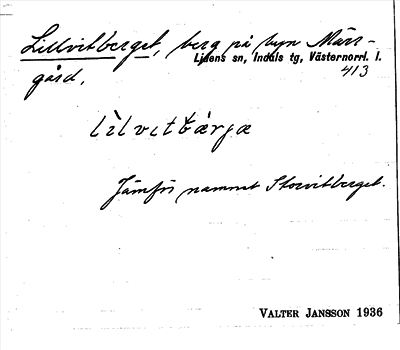 Lillvitberget, berg på byn Märr-
Lidens sn, Indals tg, Västernorrl. l.
gård. 413
lìlvitbærjæ
Jämför namnet Storvitberget.
VALTER JANSSON 1936